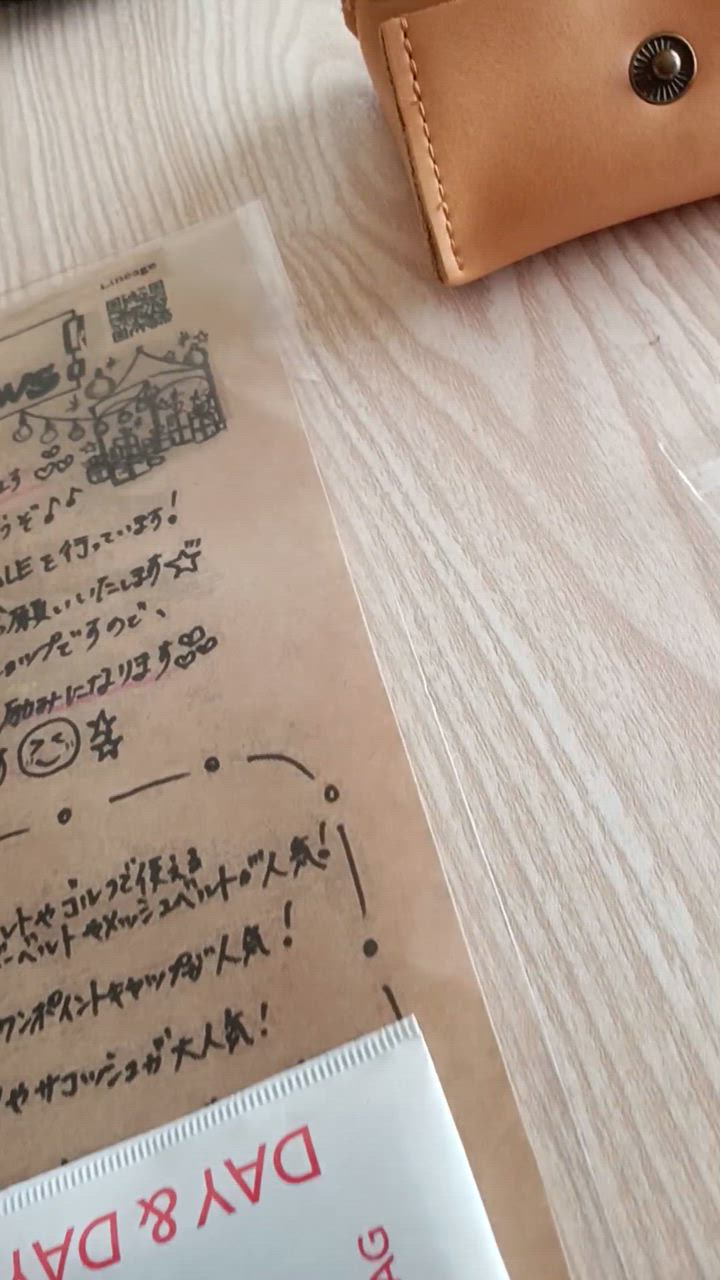 Lineage
ws
ます
うぞ♪♪
ALEを行っています!
お願いいたします☆
ョップですので、
励みになります
す
ルトやゴルフで使える
ベルトやメッシュベルトが人気!
ワンポイントキャップが人気!
やサコッシュが大人気!
DAY & DAY
AG